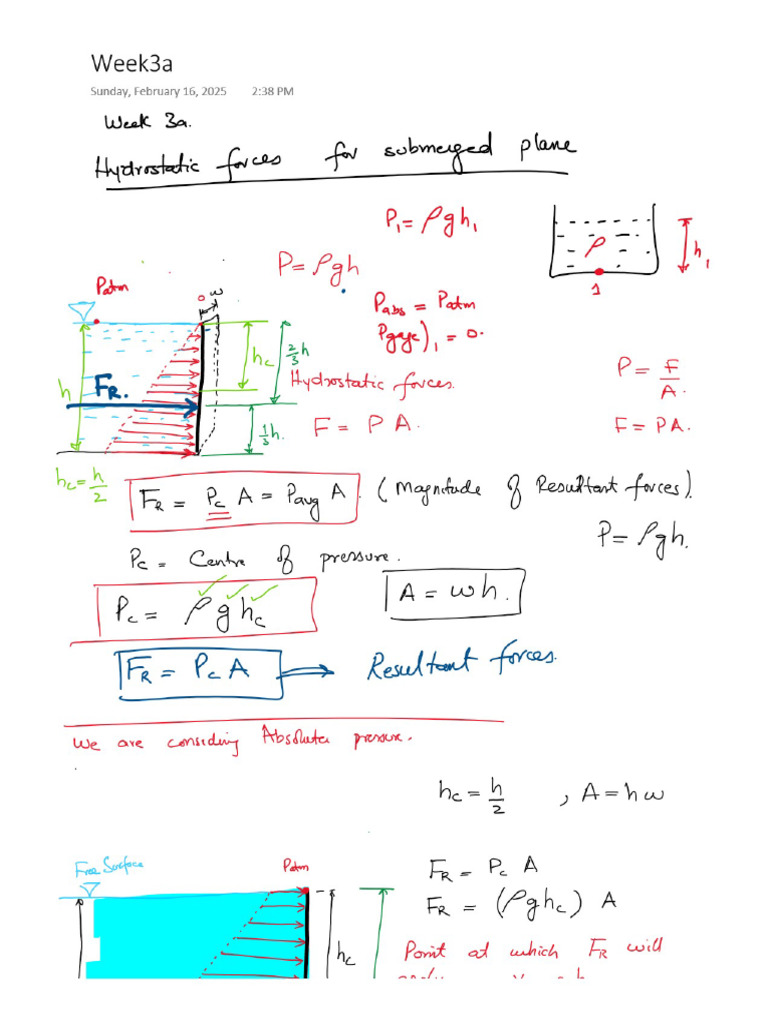 Week3a
Sunday, February 16, 2025 2:38 PM
Week 3a.
Hydrostatic forces for submerged plane
P₁ = ρgh₁
P = ρgh
ρ
h₁
1
Patm
o w
Pabs = Patm
Pgage)₁ = 0.
h
hc
2/3 h
FR.
1/3 h.
Hydrostatic forces.
F = PA.
P = F/A.
F = PA.
hc = h/2
FR = Pc A = Pavg A (Magnitude of Resultant forces).
P = ρgh.
Pc = Centre of pressure.
Pc = ρghc
A = wh.
FR = Pc A ⇒ Resultant forces.
We are considing Absolute pressure.
hc = h/2 , A = hw
Free Surface
Patm
hc
FR = Pc A
FR = (ρghc) A
Point at which FR will